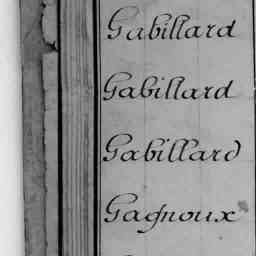 Gabillard
Gabillard
Gabillard
Gagnoux